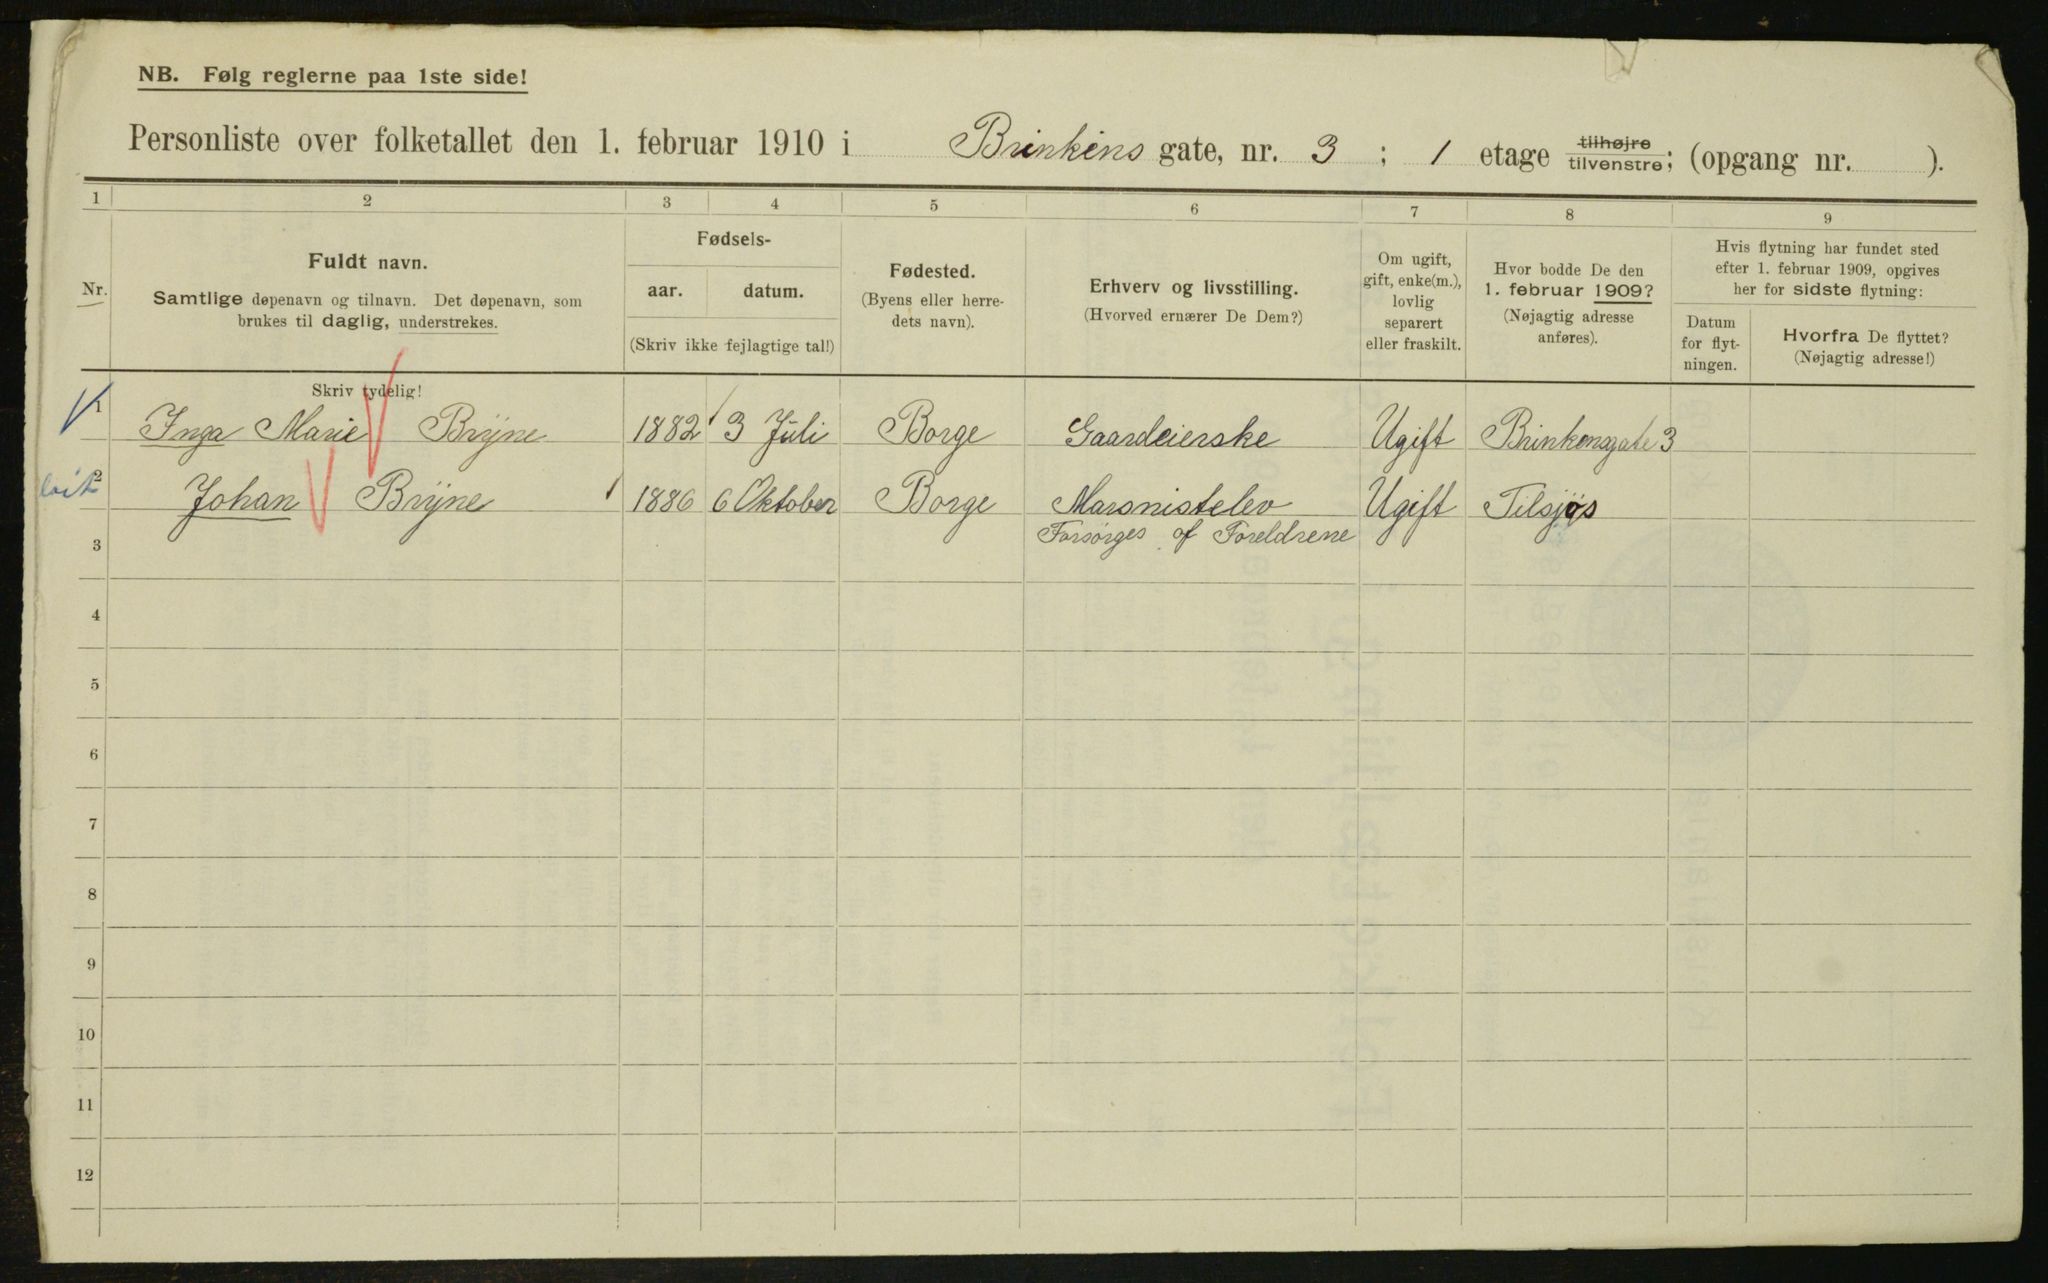 NB. Følg reglerne paa 1ste side!
Personliste over folketallet den 1. februar 1910 i Brinkens gate, nr. 3 ; 1 etage tilhøjre tilvenstre; (opgang nr. ).
1 2 3 4 5 6 7 8 9
Nr.
Fuldt navn.
Samtlige døpenavn og tilnavn. Det døpenavn, som
brukes til daglig, understrekes.
Skriv tydelig!
Fødsels-
aar. datum.
(Skriv ikke fejlagtige tal!)
Fødested.
(Byens eller herre-
dets navn).
Erhverv og livsstilling.
(Hvorved ernærer De Dem?)
Om ugift,
gift, enke(m.),
lovlig
separert
eller fraskilt.
Hvor bodde De den
1. februar 1909?
(Nøjagtig adresse
anføres).
Hvis flytning har fundet sted
efter 1. februar 1909, opgives
her for sidste flytning:
Datum
for flyt-
ningen.
Hvorfra De flyttet?
(Nøjagtig adresse!)
1 Inga Marie Bryne 1882 3 Juli Borge Gaardeierske Ugift Brinkensgate 3
2 Johan Bryne 1886 6 Oktober Borge Marsnistelev Ugift Tilsjøs
Forsørges af Foreldrene
3
4
5
6
7
8
9
10
11
12